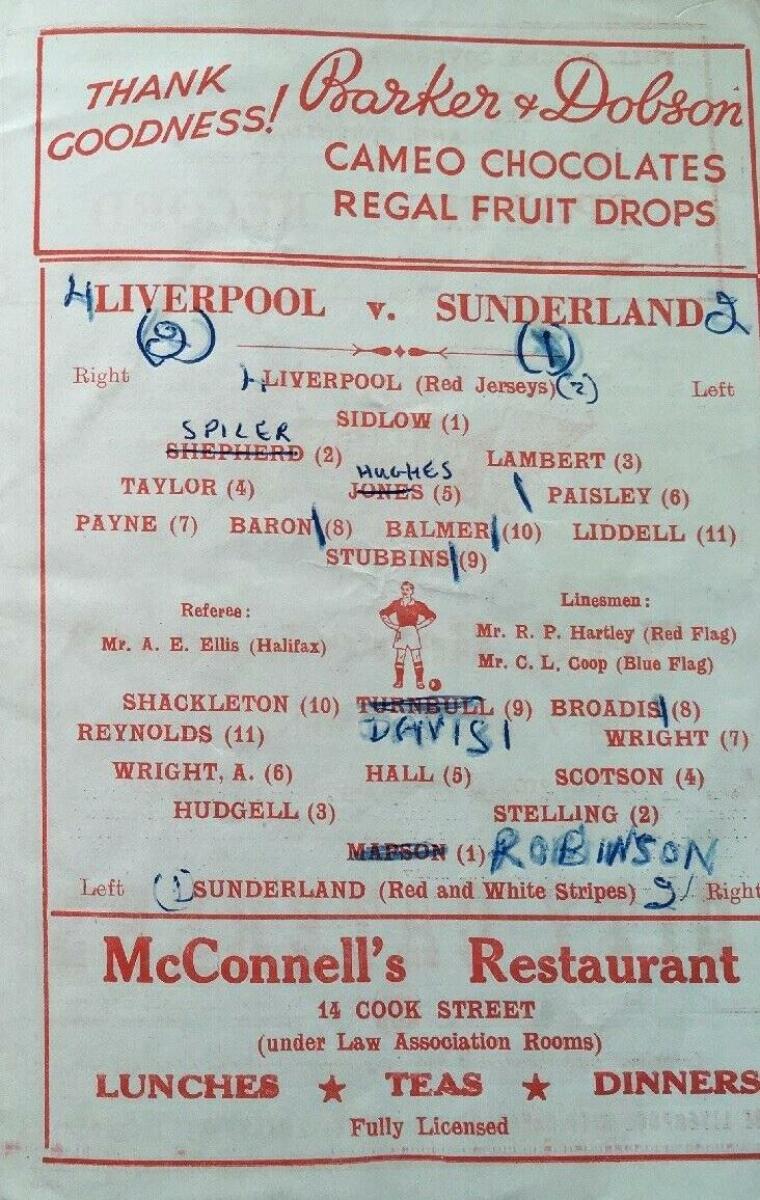 THANK GOODNESS! Barker & Dobson
CAMEO CHOCOLATES
REGAL FRUIT DROPS
4 LIVERPOOL v. SUNDERLAND 2
(2) (1)
Right 4 LIVERPOOL (Red Jerseys) (2) Left
SIDLOW (1)
SPICER
SHEPHERD (2) LAMBERT (3)
HUGHES
TAYLOR (4) JONES (5) PAISLEY (6)
PAYNE (7) BARON (8) BALMER (10) LIDDELL (11)
STUBBINS (9)
Referee: Linesmen:
Mr. A. E. Ellis (Halifax) Mr. R. P. Hartley (Red Flag)
Mr. C. L. Coop (Blue Flag)
SHACKLETON (10) TURNBULL (9) BROADIS (8)
DAVIS 1
REYNOLDS (11) WRIGHT (7)
WRIGHT, A. (6) HALL (5) SCOTSON (4)
HUDGELL (3) STELLING (2)
MAPSON (1) ROBINSON
Left (1) SUNDERLAND (Red and White Stripes) 2 Right
McConnell's Restaurant
14 COOK STREET
(under Law Association Rooms)
LUNCHES ★ TEAS ★ DINNERS
Fully Licensed